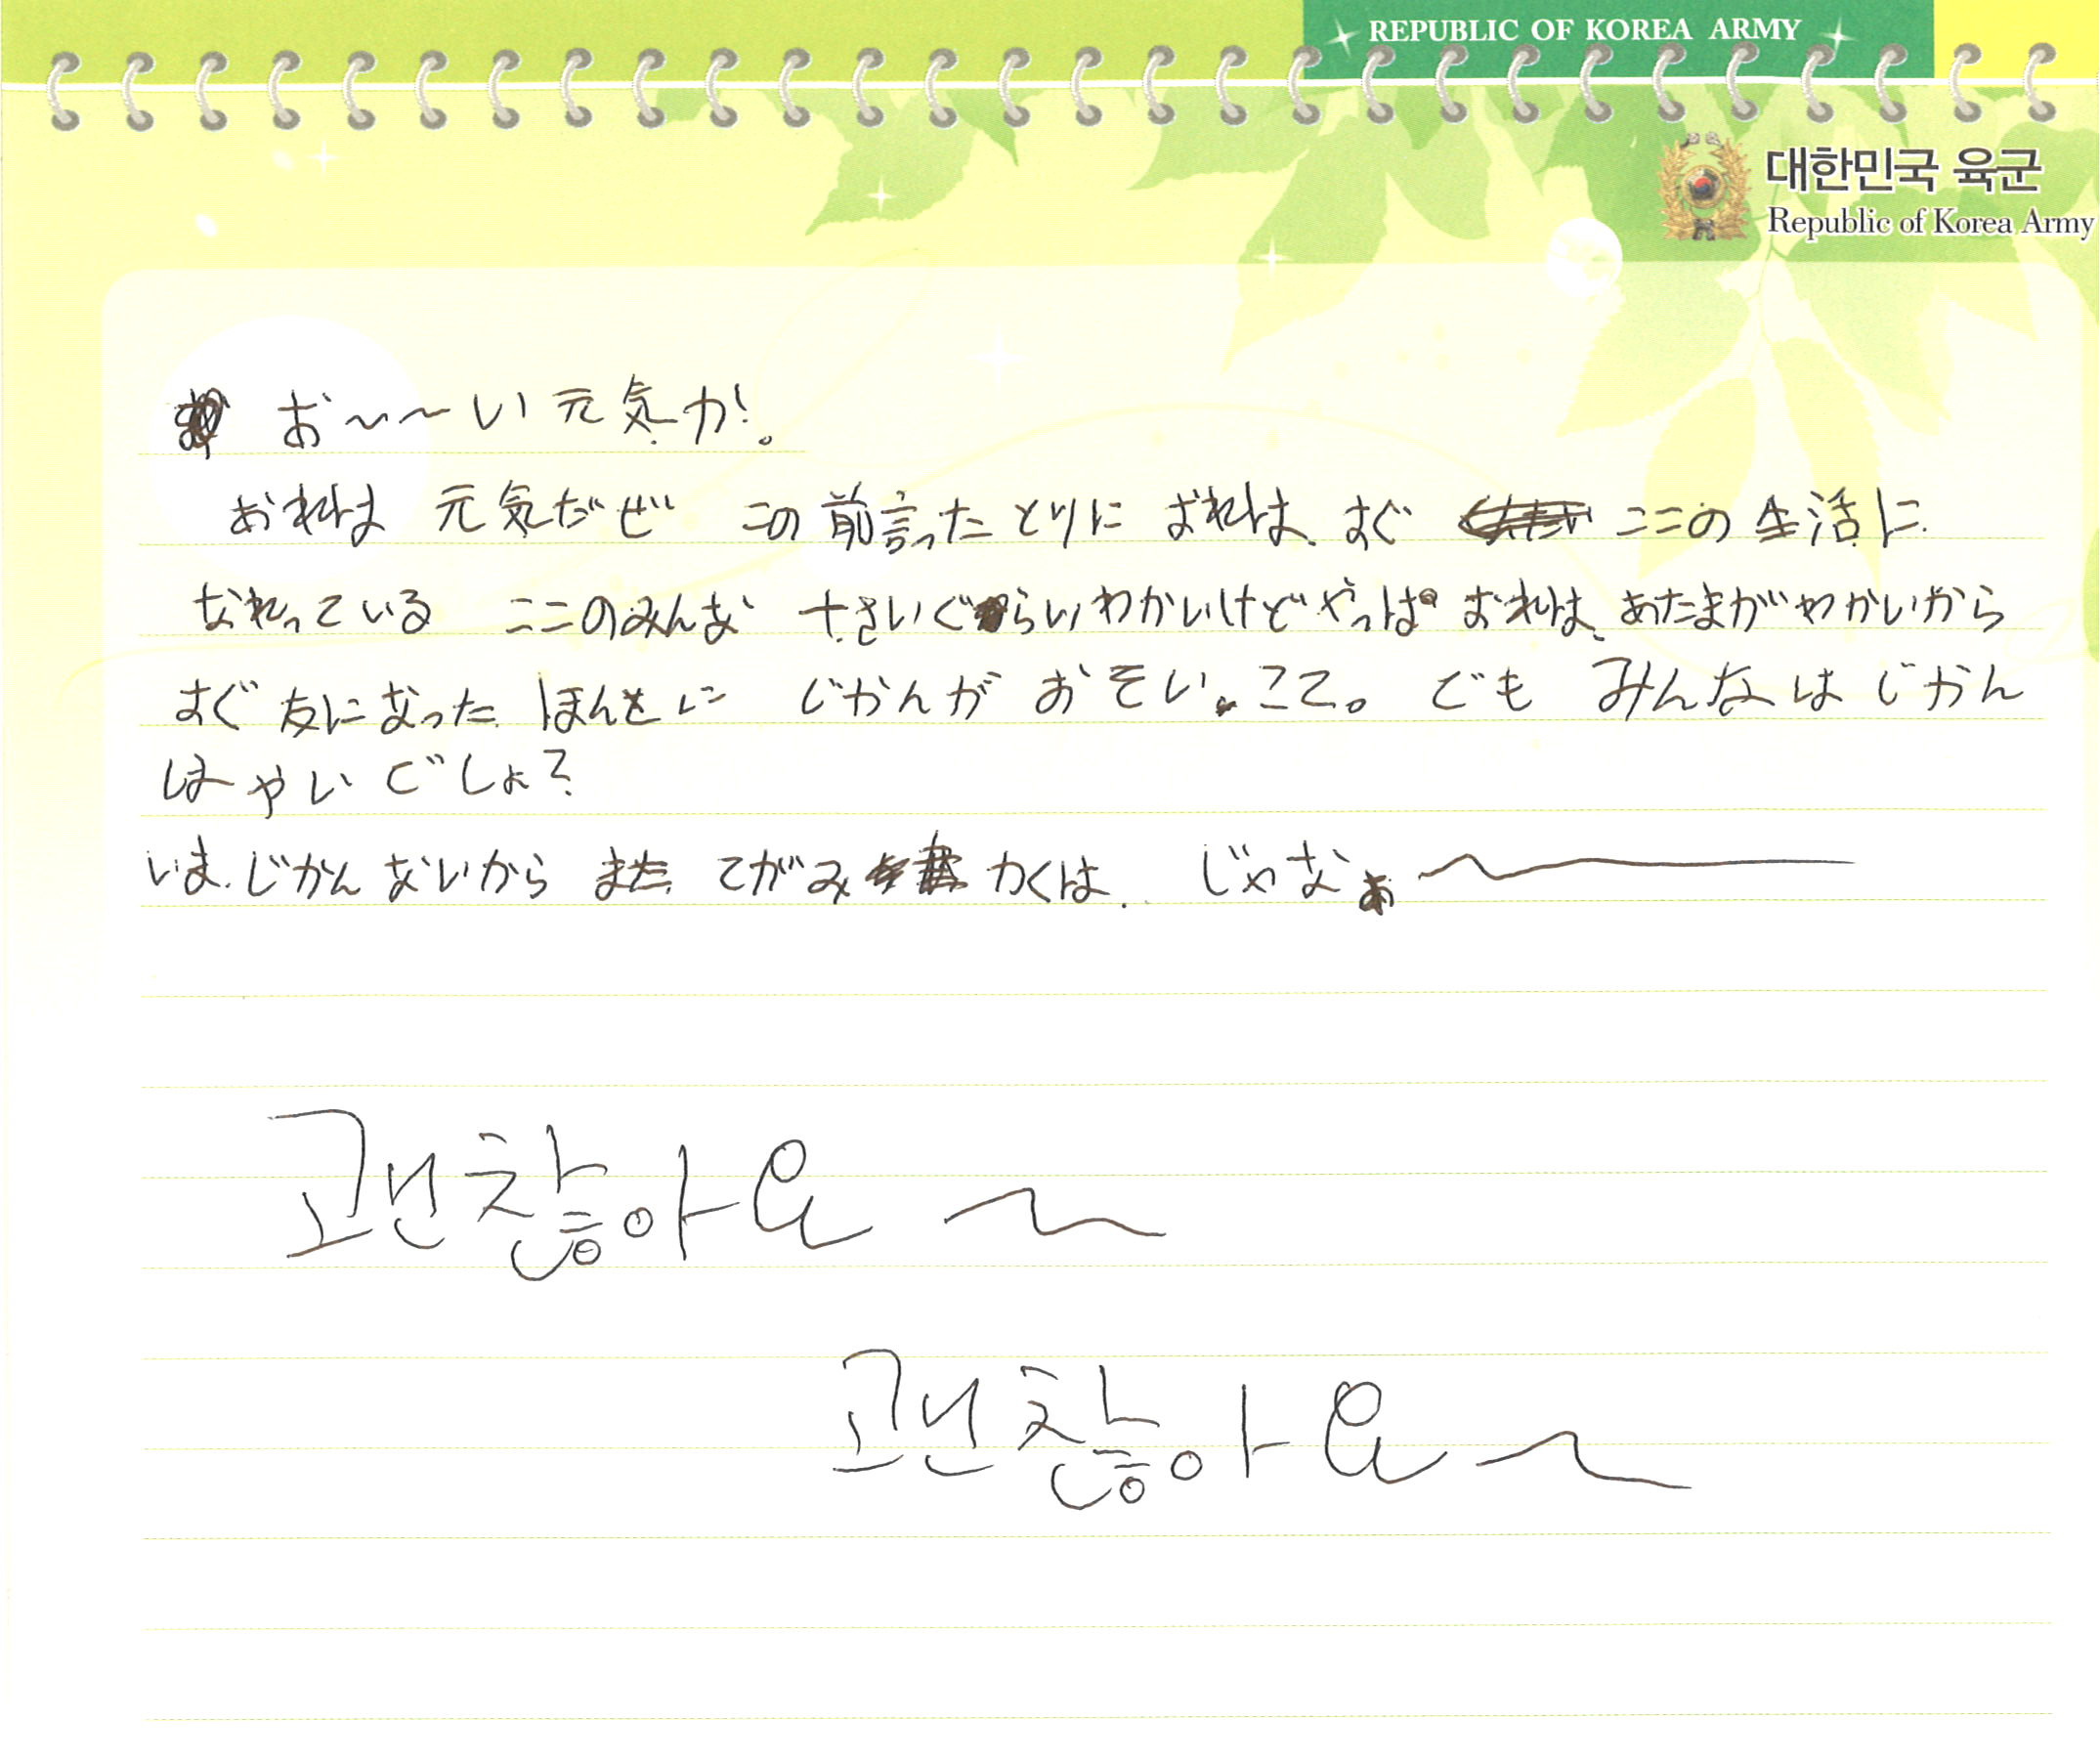 REPUBLIC OF KOREA ARMY
대한민국 육군
Republic of Korea Army
お～～い元気か!。
おれは 元気だぜ この前言ったとりに おれは、すぐ ここの生活に
なれっている ここのみんな 十さいぐらいわかいけどやっぱ おれは、あたまがわかいから
すぐ友になった ほんとに じかんが おそい。ここ。 でも みんなは じかん
はやいでしょ?
いま.じかんないから また てがみ かくは. じゃなぁ～
괜찮아요~
괜찮아요~